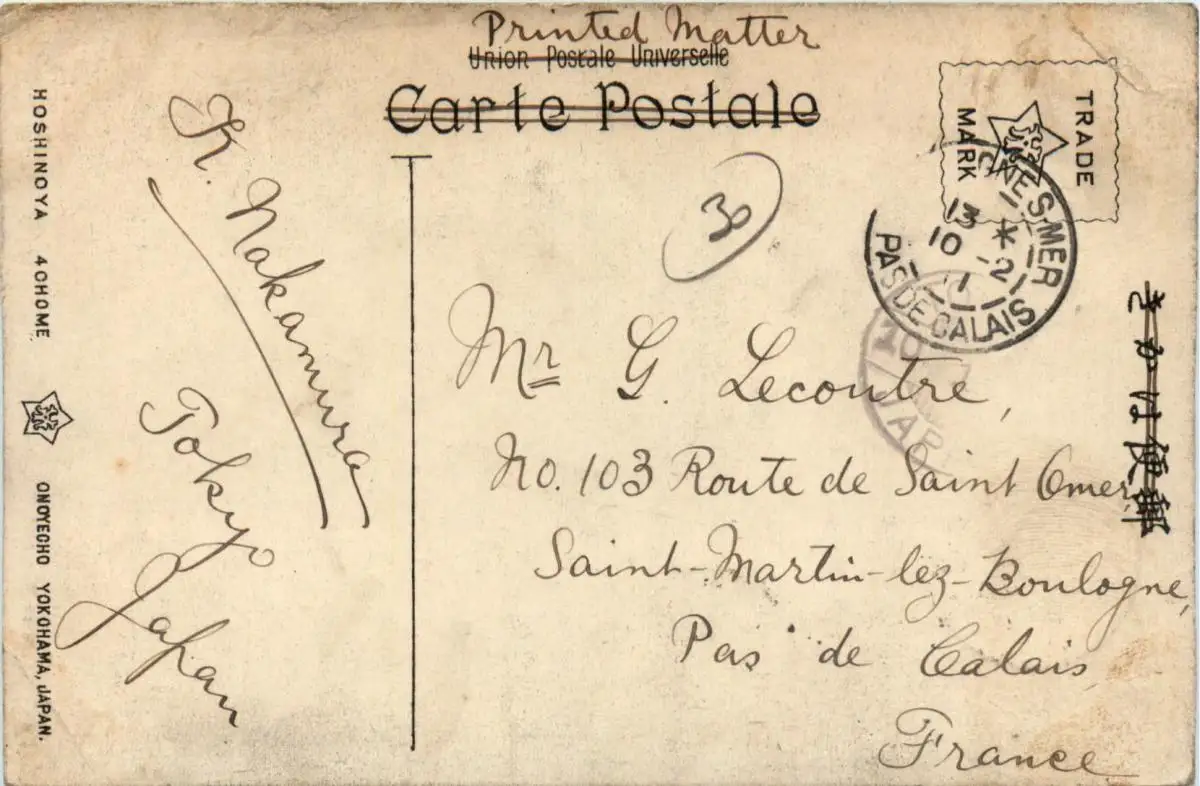 Printed Matter
Union Postale Universelle
Carte Postale
TRADE
MARK
HOSHINOYA 4CHOME
ONOYECHO YOKOHAMA, JAPAN.
K. Nakamura
Tokyo
Japan
30
NES-MER
13 *
10 -2
1
PAS DE CALAIS
10
JAP
Mr G. Lecoutre,
No. 103 Route de Saint Omer,
Saint-Martin-lez-Boulogne,
Pas de Calais
France
きかは便郵